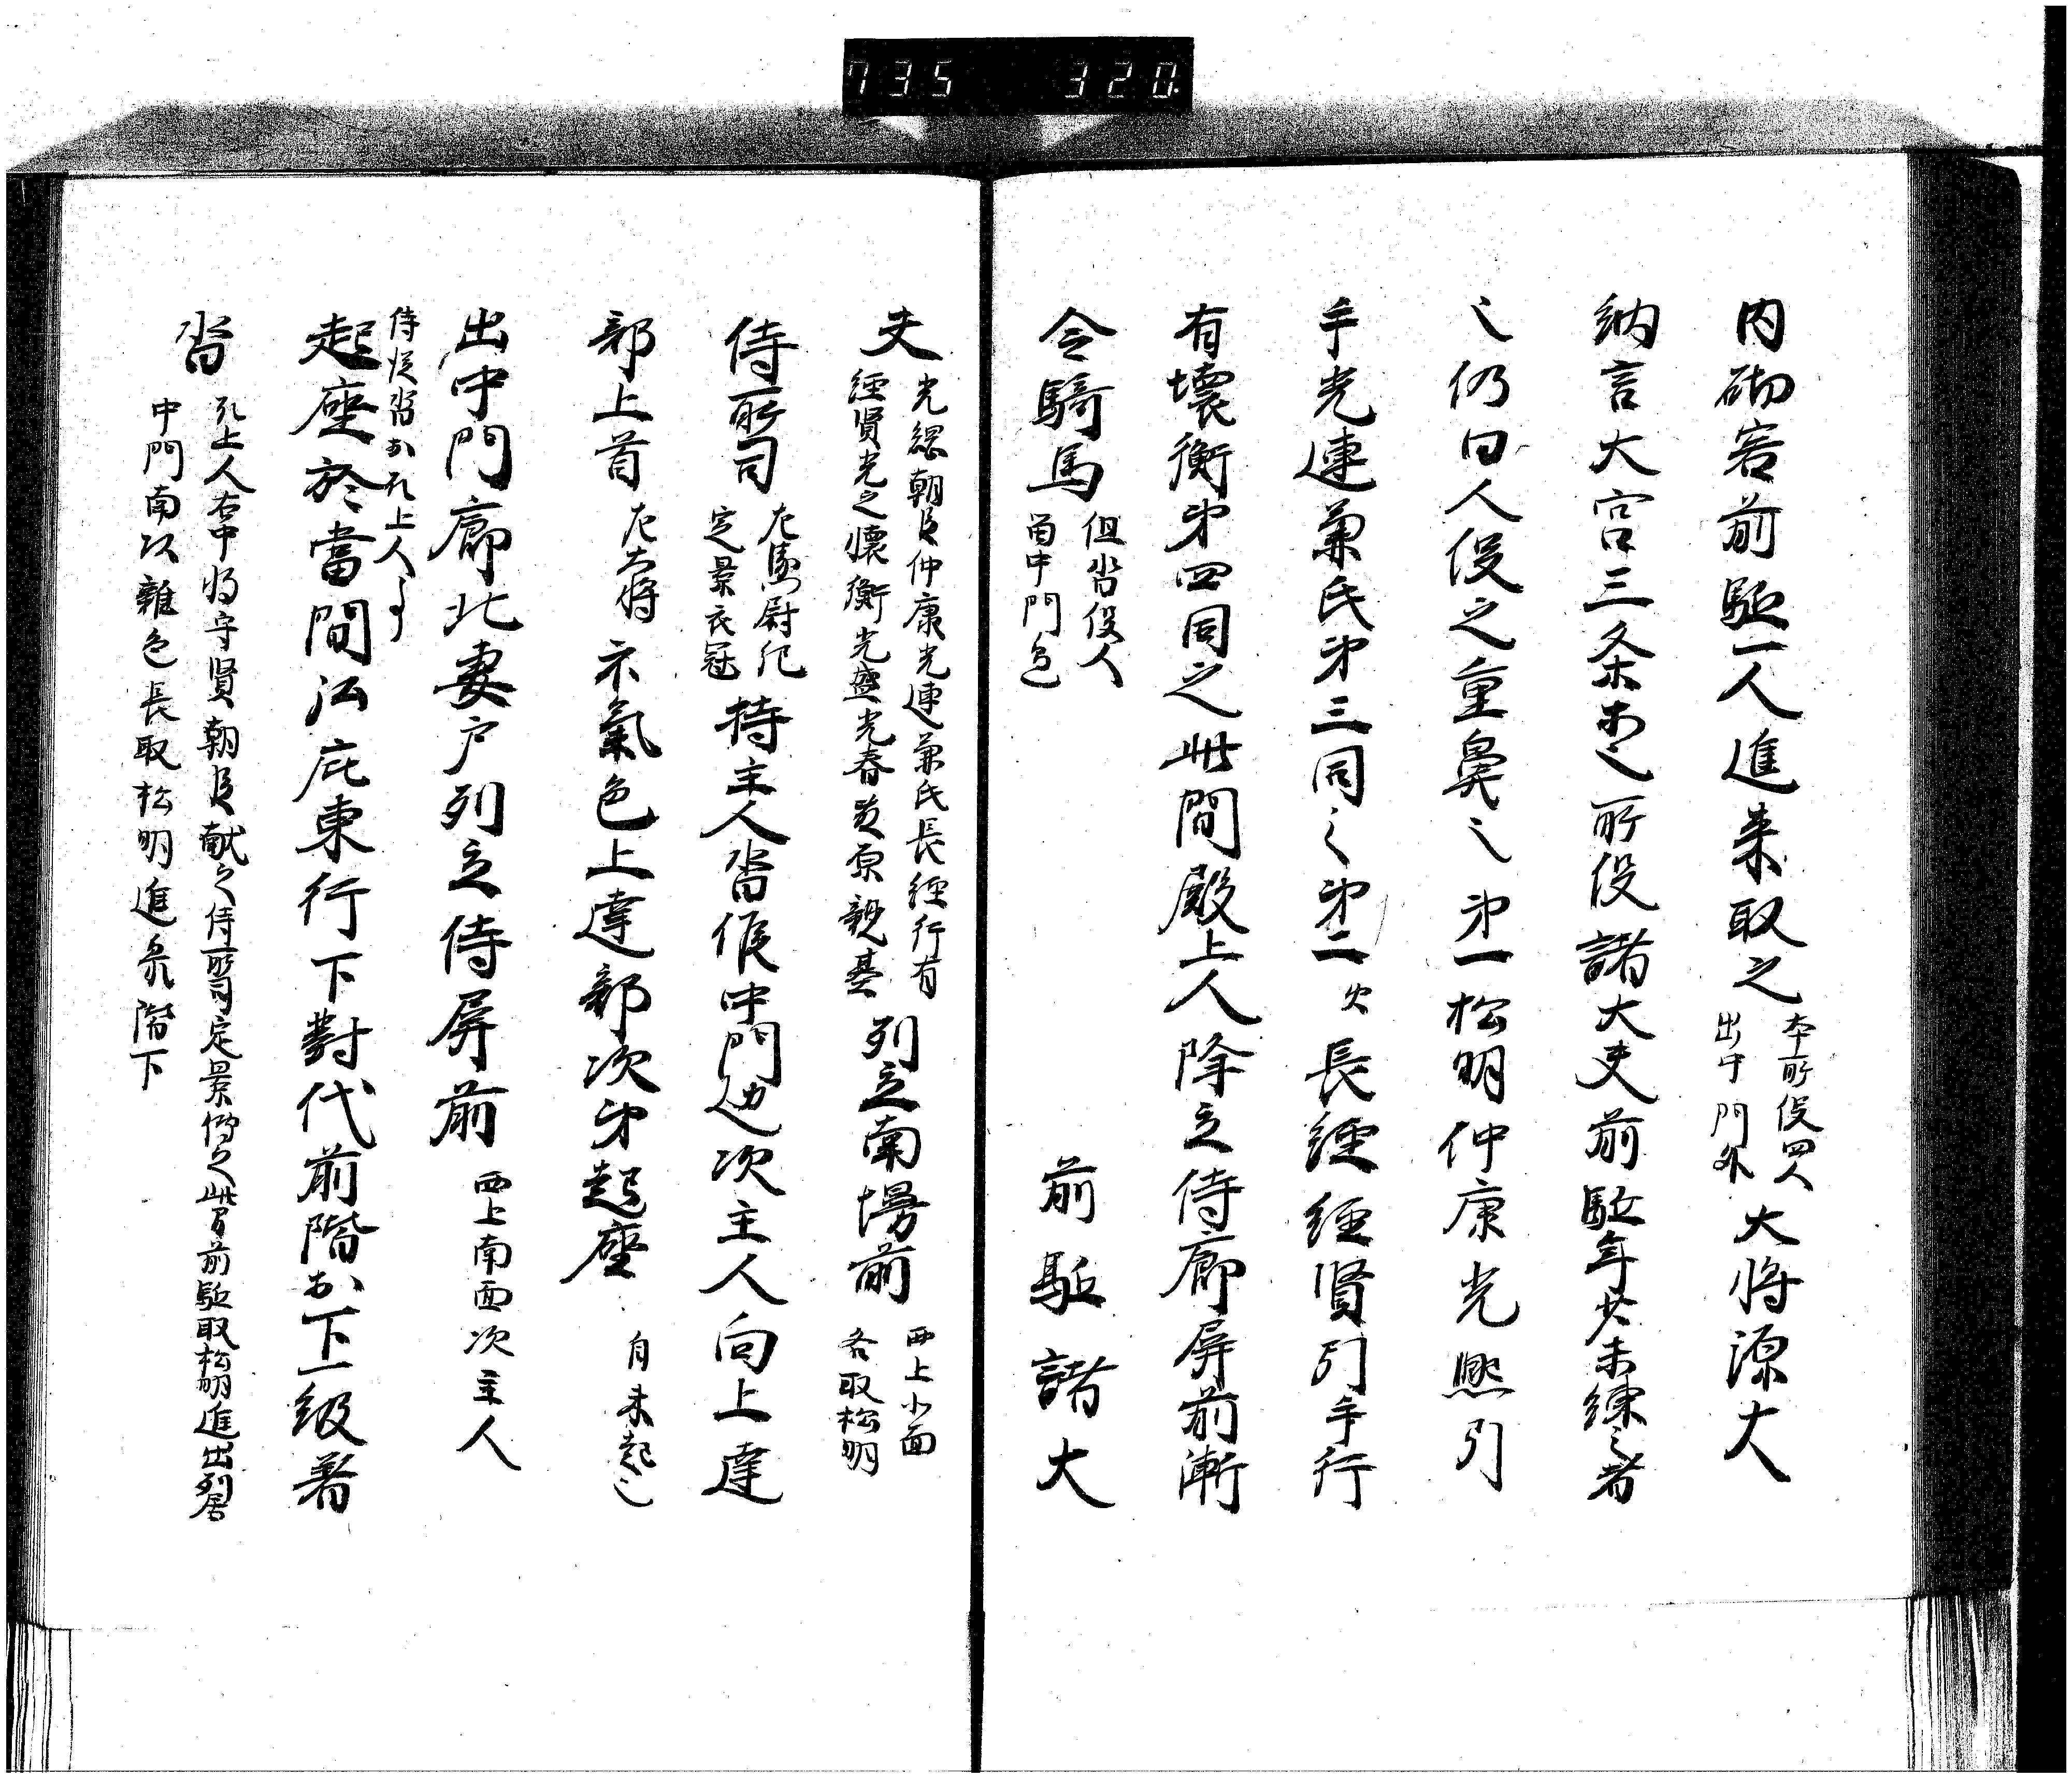 735 320.
内砌宕前駈一人進来取之 本所役四人 出中門外 大将源大
納言大宮三条等之所役諸大夫前駈年少未練之者
之仍曰人役之重奠之第一松明仲康光熙引
手光連兼氏第三同之第二火長経経賢引手行
有壊衡第四同之此間殿上人降立侍廊屏前漸
令騎馬 但沓役人 留中門邊 前駈諸大
夫 光綱朝臣仲康光連兼氏長経行有 経賢光之懐衡光盛光春資原親基 列立南場前 西上北面 各取松明
侍所司 左馬尉紀 定景衣冠 持主人沓候中門邊次主人向上達
部上首 左大将 示氣色上達部次第起座 自末起之
出中門廊北妻戸列立侍屏前 西上南面 次主人
侍従沓於孔上人了
起座於當間弘庇東行下對代前階於下一級著
沓 孔上人右中将守賢朝臣献之侍所司定景傳之此間前駈取松明進出列居 中門南以雜色長取松明進参階下